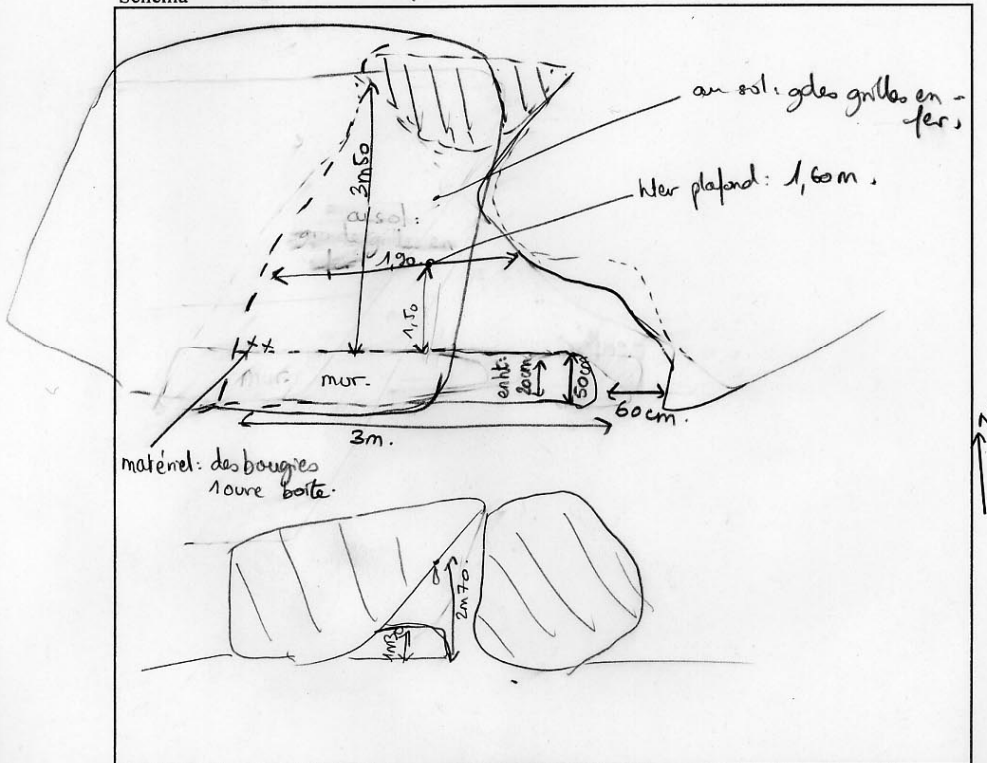 Schéma
au sol: gdes grilles en
fer.
hter plafond: 1,60m.
3m50
au sol:
1,90
1,50
mur.
en ht:
20cm
50cm
60cm.
3m.
matériel: des bougies
1 ouvre boîte.
2m70.